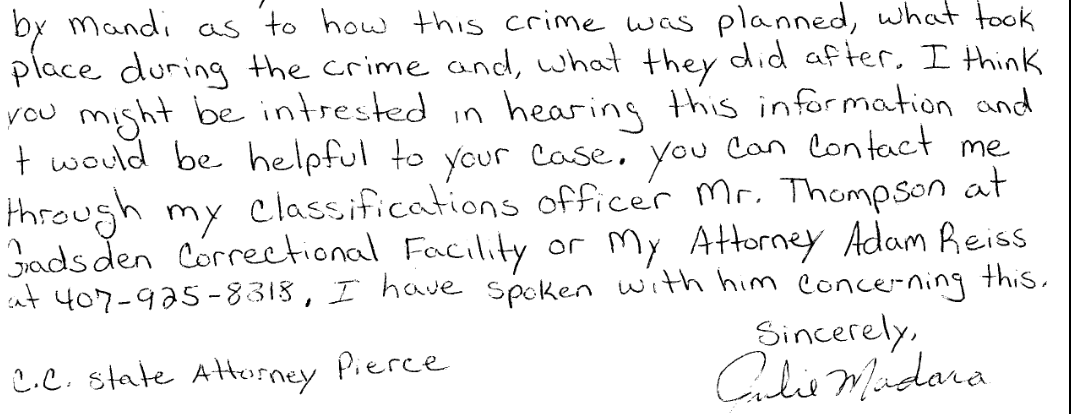 by mandi as to how this crime was planned, what took
place during the crime and, what they did after. I think
you might be intrested in hearing this information and
t would be helpful to your case. you can contact me
through my classifications officer Mr. Thompson at
Gadsden Correctional Facility or My Attorney Adam Reiss
at 407-925-8318, I have spoken with him concerning this.
Sincerely,
C.C. state Attorney Pierce
Julie Madara